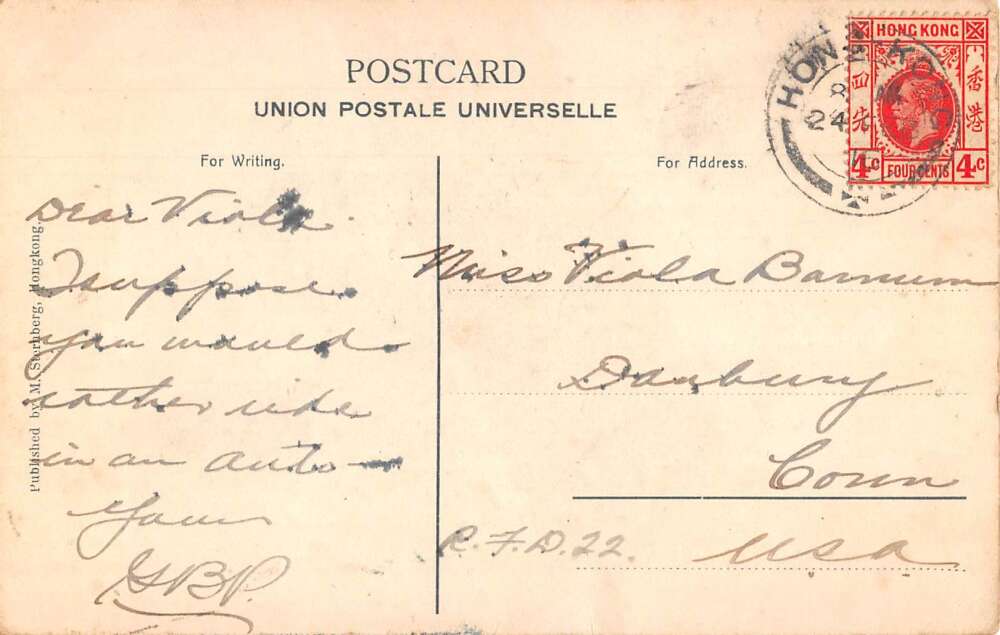 POSTCARD
UNION POSTALE UNIVERSELLE
For Writing.
For Address.
HONG KONG
香港
四先
4C
FOUR CENTS
4C
HONG KONG
8
24
Published by M. Sternberg, Hongkong.
Dear Viola.
I suppose
you would
rather ride
in an auto—
Yours
GBP.
Miss Viola Barnum
Danbury
Conn
R.F.D. 22.
USA